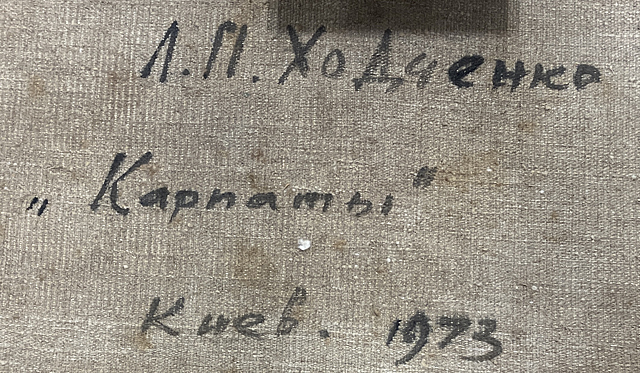 Л.П. Ходченко
„Карпаты"
Киев. 1973